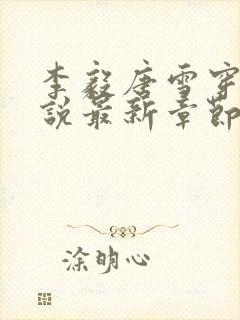 李毅唐雪穿
说最新章節
涂明心